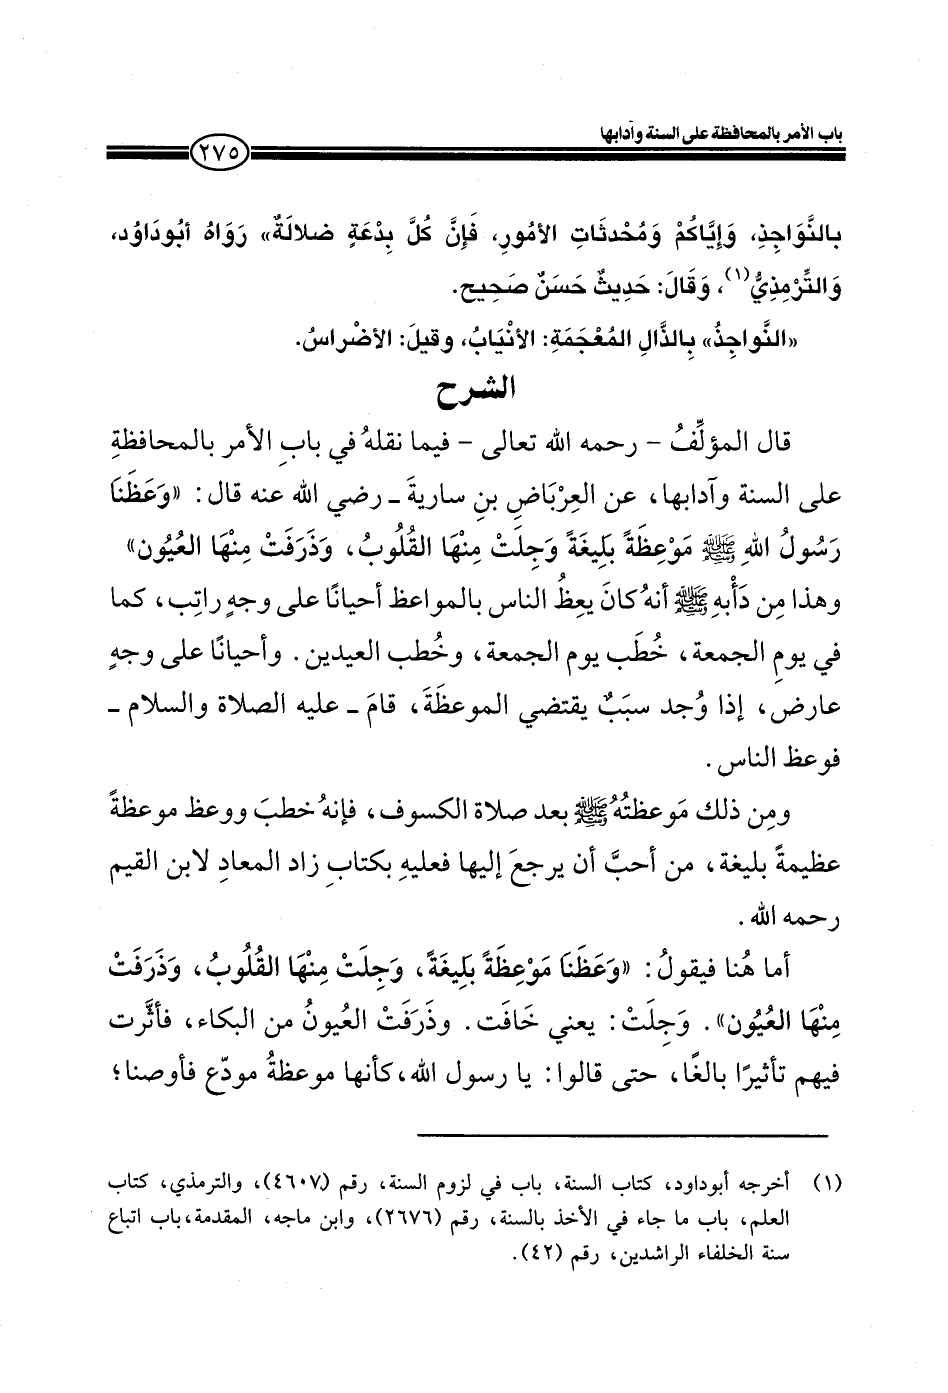 باب الأمر بالمحافظة على السنة وآدابها
٢٧٥
بالنَّوَاجِذِ، وَإِيَّاكُمْ وَمُحْدثَاتِ الأمُورِ، فَإِنَّ كُلَّ بِدْعَةٍ ضلالَةٌ» رَوَاهُ أبُوداوُد،
وَالتِّرْمِذِيُّ(١)، وَقَالَ: حَدِيثٌ حَسَنٌ صَحِيح.
«النَّواجِذُ» بِالذَّالِ المُعْجَمَةِ: الأنْيَابُ، وقيلَ: الأضْراسُ.
الشرح
قال المؤلِّفُ - رحمه الله تعالى - فيما نقلهُ في بابِ الأمر بالمحافظةِ
على السنة وآدابها، عن العِرْبَاضِ بنِ ساريةَ - رضي الله عنه قال: «وَعَظَنَا
رَسُولُ اللهِ ﷺ مَوْعِظَةً بَلِيغَةً وَجِلَتْ مِنْهَا القُلُوبُ، وَذَرَفَتْ مِنْهَا العُيُون»
وهذا مِن دَأْبهِ ﷺ أنهُ كانَ يعِظُ الناس بالمواعظ أحيانًا على وجهٍ راتِب، كما
في يومِ الجمعة، خُطَب يوم الجمعة، وخُطب العيدين. وأحيانًا على وجهٍ
عارض، إذا وُجد سبَبٌ يقتضي الموعظَةَ، قامَ - عليه الصلاة والسلام -
فوعظ الناس.
ومِن ذلك مَوعظتُهُ ﷺ بعد صلاة الكسوف، فإنهُ خطبَ ووعظ موعظةً
عظيمةً بليغة، من أحبَّ أن يرجعَ إليها فعليهِ بكتابِ زاد المعادِ لابن القيم
رحمه الله.
أما هُنا فيقولُ: «وَعَظَنَا مَوْعِظَةً بَلِيغَةً، وَجِلَتْ مِنْهَا القُلُوبُ، وَذَرَفَتْ
مِنْهَا العُيُون». وَجِلَتْ: يعني خَافَت. وذَرَفَتْ العُيونُ من البكاء، فأثَّرت
فيهم تأثيرًا بالغًا، حتى قالوا: يا رسول الله، كأنها موعظةُ مودّع فأوصنا؛
(١) أخرجه أبوداود، كتاب السنة، باب في لزوم السنة، رقم (٤٦٠٧)، والترمذي، كتاب
العلم، باب ما جاء في الأخذ بالسنة، رقم (٢٦٧٦)، وابن ماجه، المقدمة، باب اتباع
سنة الخلفاء الراشدين، رقم (٤٢).